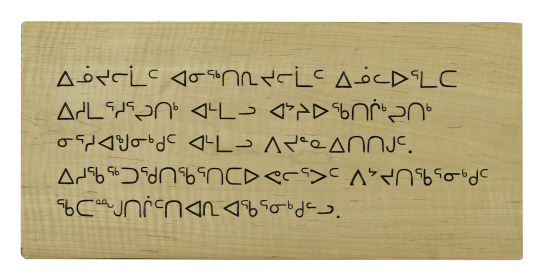 ᐃᓅᔪᓕᒫᑦ ᐊᓂᖅᑎᕆᔪᓕᒫᑦ ᐃᓅᓚᐅᕐᒪᑕ
ᐃᓱᒪᕐᓱᕐᑐᑎᒃ ᐊᒻᒪᓗ ᐊᔾᔨᐅᖃᑎᒌᒃᖢᑎᒃ
ᓂᕐᓱᐊᖑᓂᒃᑯᑦ ᐊᒻᒪᓗ ᐱᔪᓐᓇᐃᑎᑎᒍᑦ.
ᐃᓱᖃᖅᑐᖁᑎᖃᕐᑎᑕᐅᕙᓕᕐᐳᑦ ᐱᔾᔪᑎᖃᕐᓂᒃᑯᑦ
ᖃᑕᙳᑎᒌᑦᑎᐊᕆ ᐊᖃᕐᓂᒃᑯᓪᓗ.